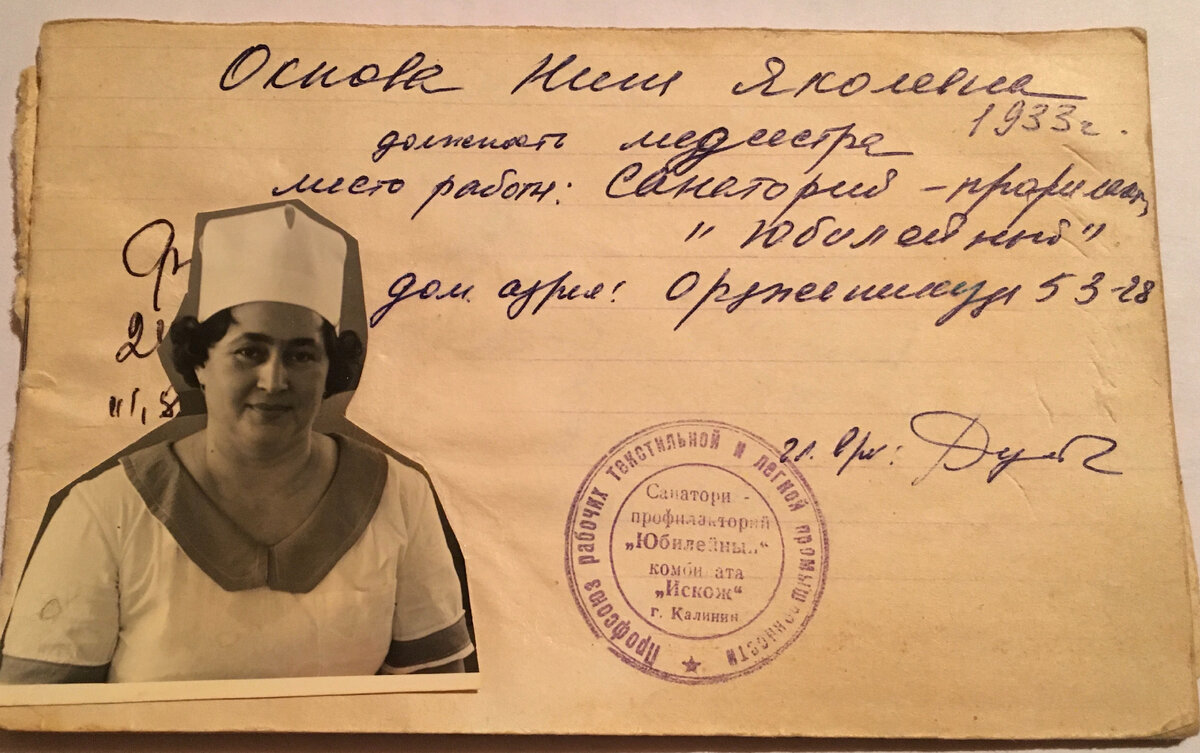 Основа Нина Яколевна
1933г.
должность медсестра
место работы: Санаторий - профилакт
"Юбилейный"
дом. адрес: Орджоникидзе 53-28
гл. вр.:
Профсоюз рабочих текстильной и легкой промышленности
Санатори -
профилакторий
„Юбилейны.."
комбината
„Искож"
г. Калинин